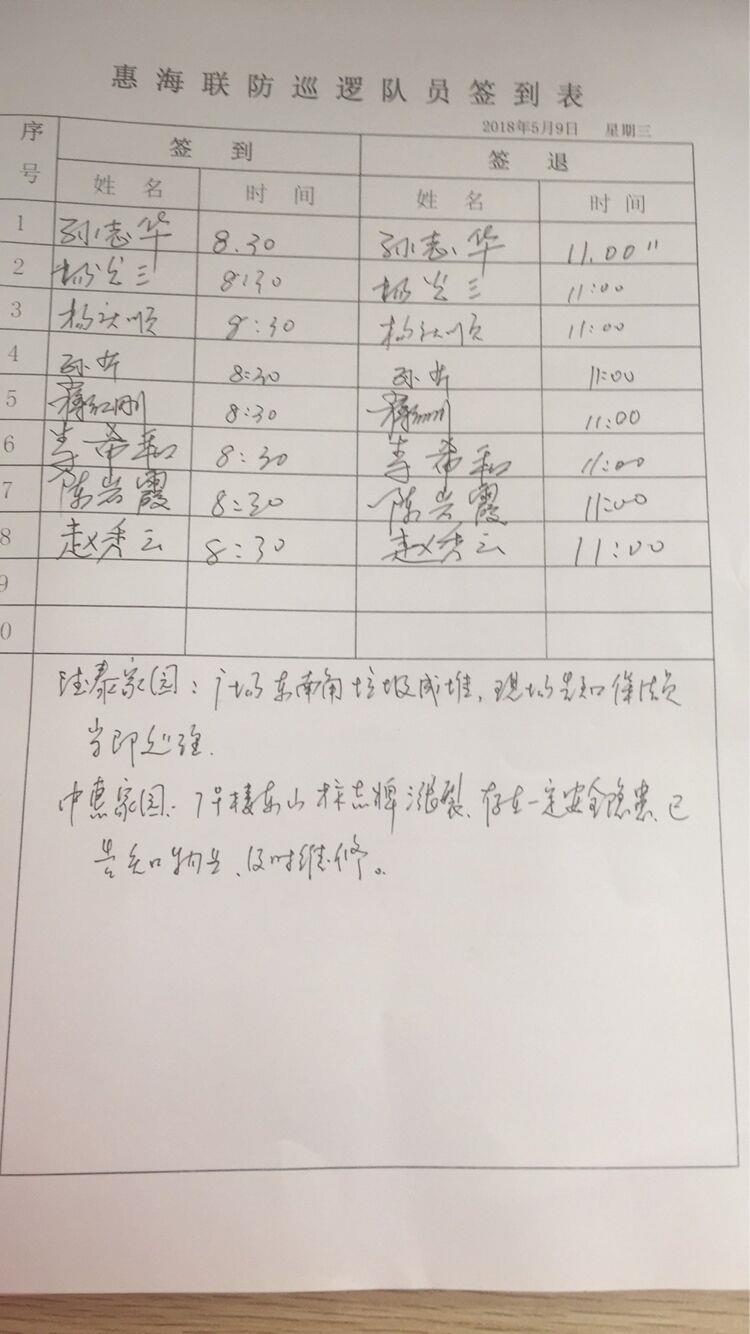 惠海联防巡逻队员签到表
2018年5月9日 星期三
序号 签到 签退
姓名 时间 姓名 时间
1 孙志华 8.30 孙志华 11.00"
2 杨兰三 8:30 杨兰三 11:00
3 杨法顺 8:30 杨法顺 11:00
4 孙 8:30 孙 11:00
5 蒋红刚 8:30 蒋 刚 11:00
6 李希和 8:30 李希和 11:00
7 陈岩霞 8:30 陈岩霞 11:00
8 赵秀云 8:30 赵秀云 11:00
9
0
泰家园：广场东南角垃圾成堆，现场告知保洁员
当即
中惠家园、7号楼东山标志牌涨裂、存在一定安全隐患、已
告知物业、及时维修。